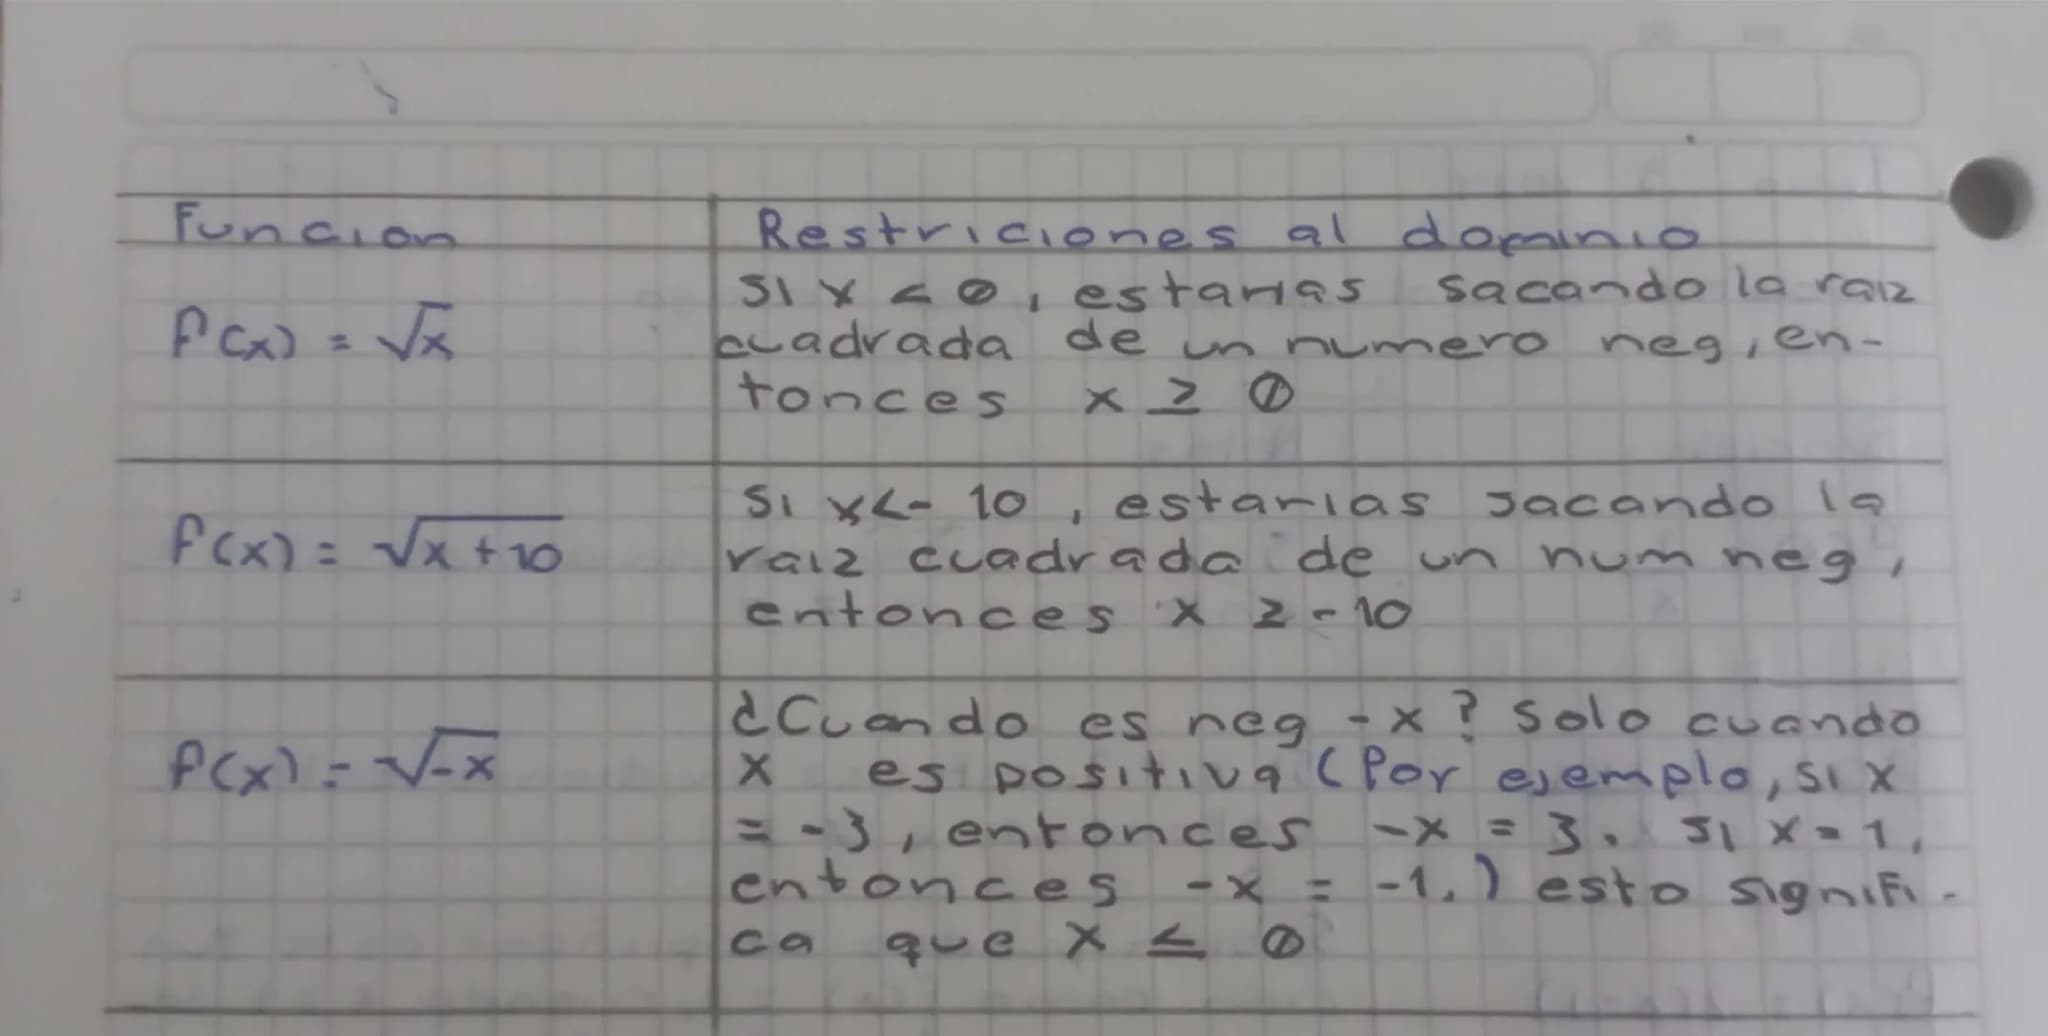 Funcion
Restriciones al dominio
f(x) = √x
SI x < 0, estarias sacando la raiz
cuadrada de un numero neg, en-
tonces x ≥ 0
f(x) = √x + 10
Si x<- 10, estarias sacando la
raiz cuadrada de un num neg,
entonces x ≥ - 10
f(x) = √-x
¿Cuando es neg -x? Solo cuando
x es positiva (Por ejemplo, si x
= -3, entonces -x = 3. si x = 1,
entonces -x = -1.) esto signifi-
ca que x ≤ 0